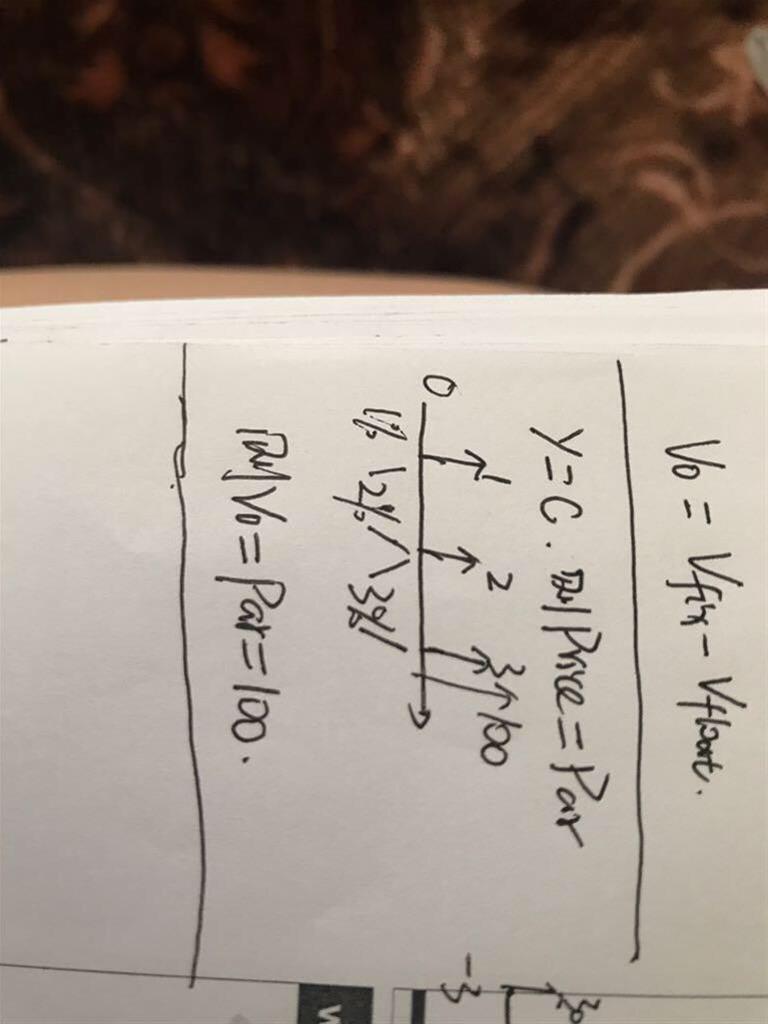 V0 = Vfix - Vfloat.
Y = C. 则 Price = Par
1 2 3 100
0
1% 2% 3%
则 V0 = Par = 100.
-3